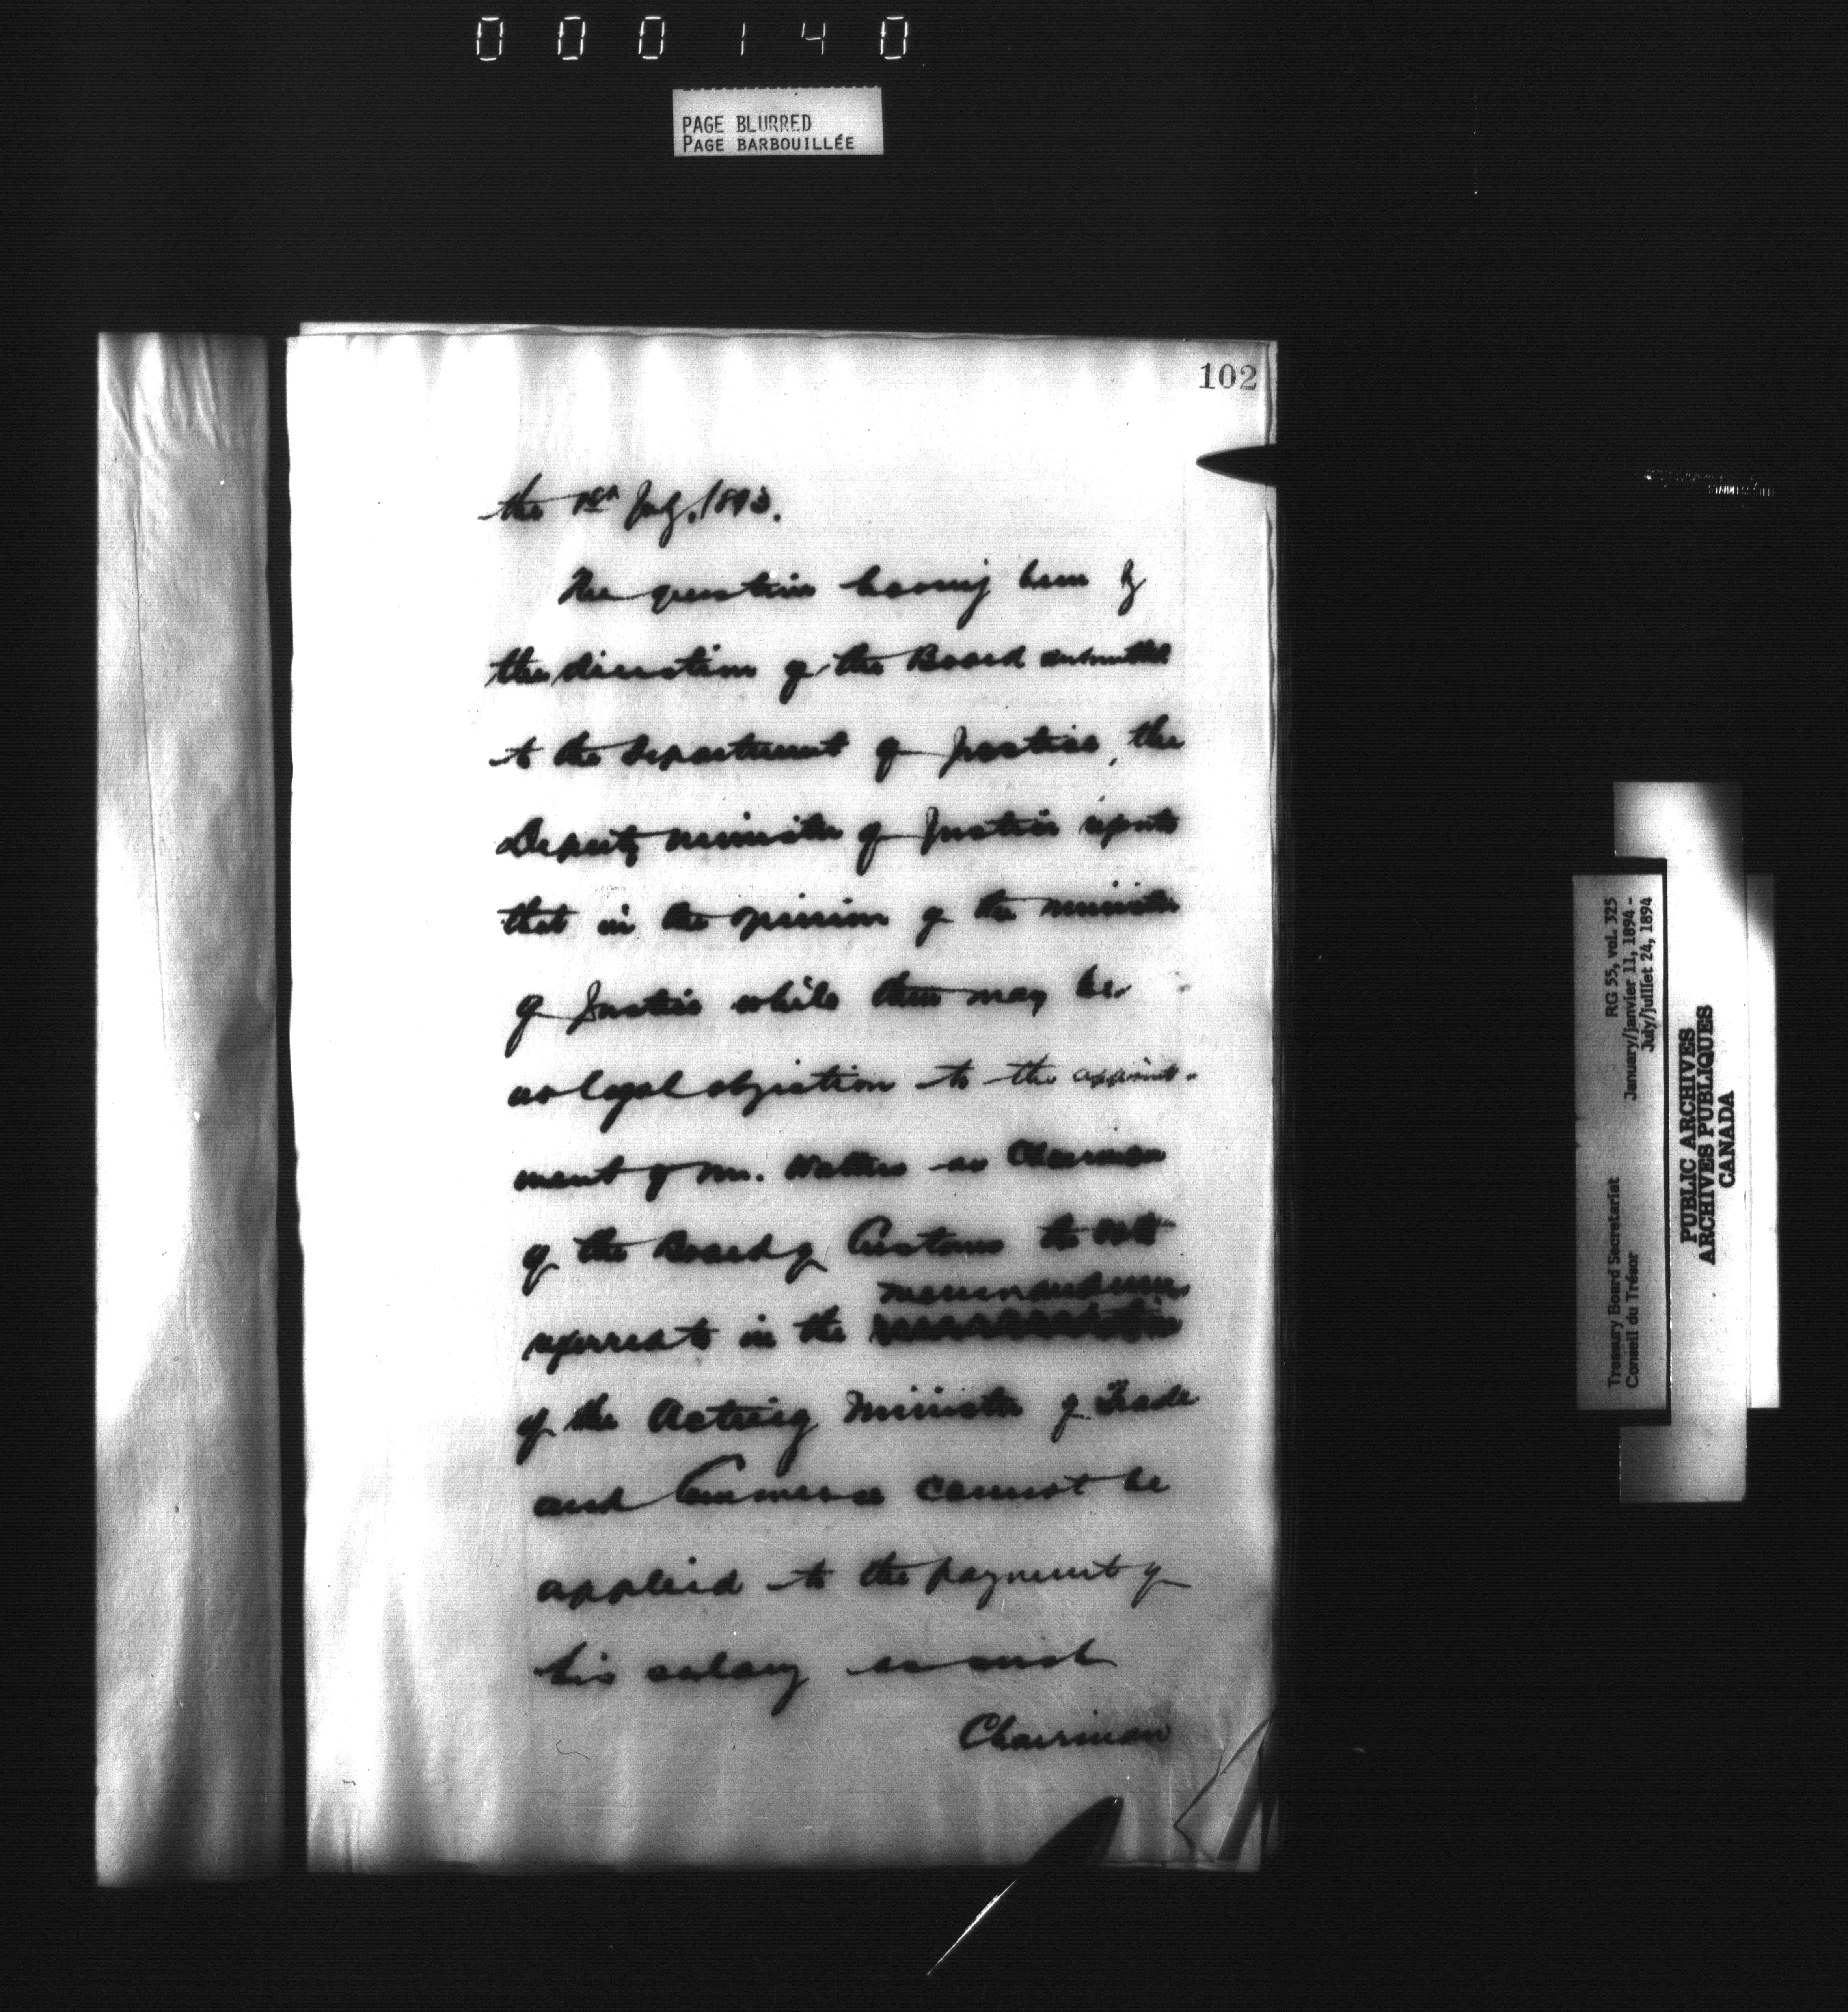 000140
PAGE BLURRED
PAGE BARBOUILLÉE
102
the 1st July, 1893.
The question having been by
the direction of the Board submitted
to the Department of Justice, the
Deputy Minister of Justice reports
that in the opinion of the Minister
of Justice while there may be
no legal objection to the appoint-
ment of Mr. Watters as Chairman
of the Board of Customs the vote
memorandum
referred to in the
of the Acting Minister of Trade
and Commerce cannot be
applied to the payment of
his salary as such
Chairman
Treasury Board Secretariat RG 55, vol. 325
Conseil du Trésor January/janvier 11, 1894 -
July/juillet 24, 1894
PUBLIC ARCHIVES
ARCHIVES PUBLIQUES
CANADA